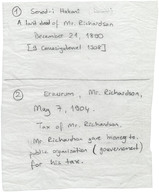 ① Sened-i Hakani
A land deed of Mr. Richardson
December 21, 1890
[9 Cemaziyelevvel 1308]
② Erzurum, Mr. Richardson,
May 7, 1904.
Tax of Mr. Richardson.
Mr Richardson gave money to
public organisation (government)
for his tax.